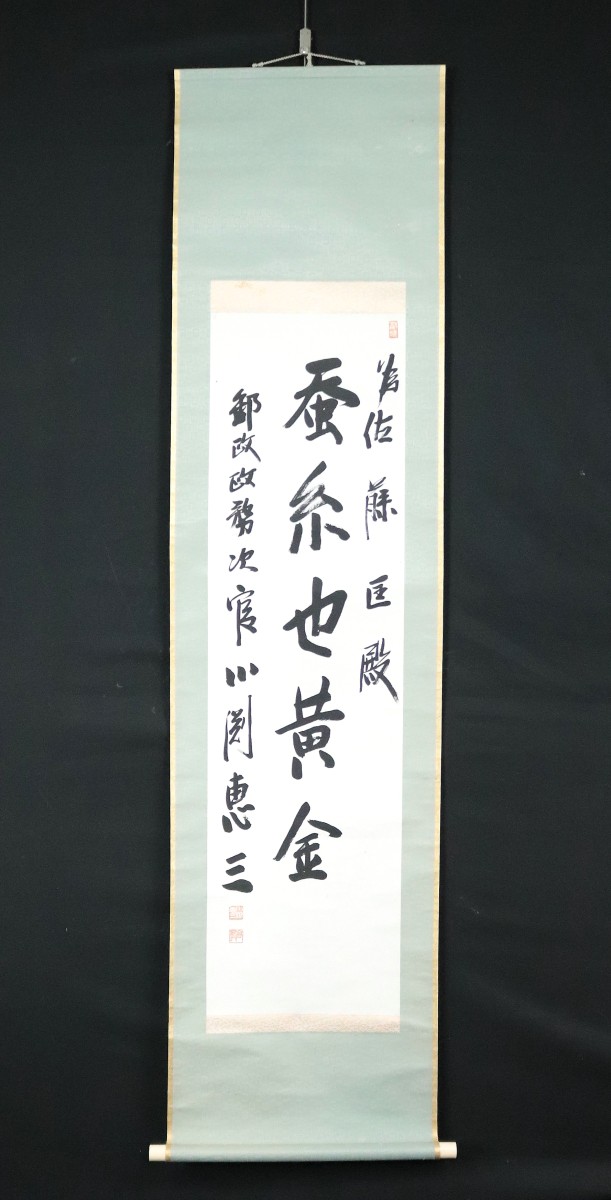 為佐藤匡殿
蚕糸也黄金
郵政政務次官小渕恵三